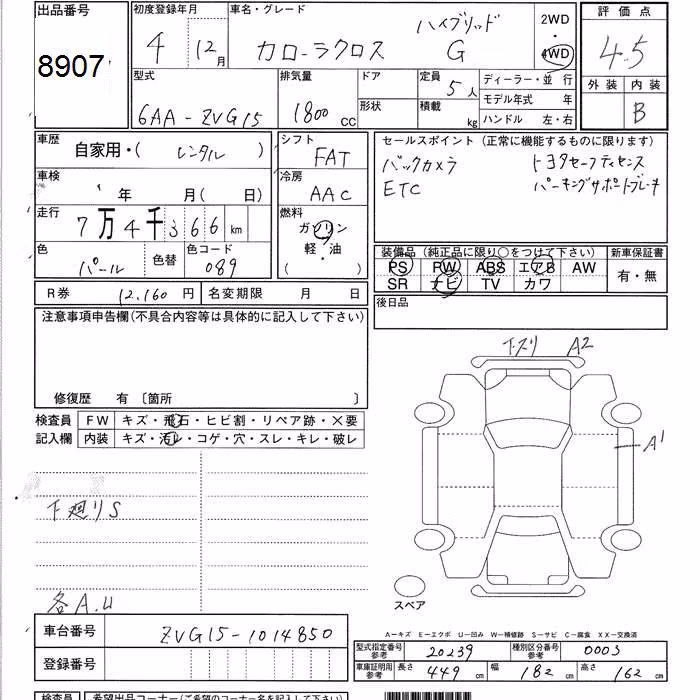 出品番号
8907
初度登録年月
4 12月
車名・グレード
カローラクロス
ハイブリッド
G
2WD
・
4WD
評価点
4.5
外装 内装
B
型式
6AA-ZVG15
排気量
1800 cc
ドア
形状
定員
5人
積載
kg
ディーラー・並行
モデル年式 年
ハンドル 左・右
車歴
自家用・( レンタル )
車検
年 月( 日)
走行
7万4千366km
色
パール
色替
色コード
089
シフト
FAT
冷房
AAC
燃料
ガソリン
軽・油
( ・ )
セールスポイント (正常に機能するものに限ります)
バックカメラ
トヨタセーフティセンス
ETC
パーキングサポートブレーキ
装備品 (純正品に限り○をつけて下さい)
新車保証書
PS PW ABS エアB AW
SR ナビ TV カワ
有・無
後日品
R券 12,160円
名変期限 月 日
注意事項申告欄(不具合内容等は具体的に記入して下さい)
修復歴 有 〔箇所 〕
検査員
記入欄
FW キズ・飛石・ヒビ割・リペア跡・×要
内装 キズ・汚レ・コゲ・穴・スレ・キレ・破レ
下廻りS
各A.U
下スリ A2
A1
スペア
A-キズ E-エクボ U-凹み W-補修跡 S-サビ C-腐食 XX-交換済
車台番号
ZVG15-1014850
登録番号
型式指定番号
参考
20239
種別区分番号
参考
0005
車庫証明用
参考
長さ 449 cm
幅 182 cm
高さ 162 cm
検査員
希望出品コーナー(ご希望のコーナー名を記入して下さい)